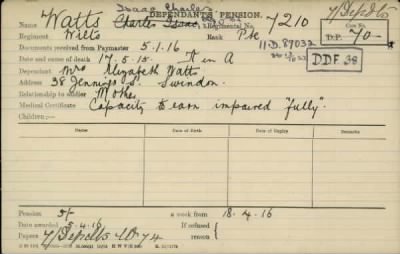 Isaac Charles
DEPENDANT'S PENSION.
Name Watts Charles Isaac Regimental No. 7210
7/Dep
Case No.
D.P. 70
Regiment Wilts Rank Pte
11.D.87032
DDF 38
Documents received from Paymaster 5.1.16
Date and cause of death 17.5.15 K in A
Dependant Mrs Elizabeth Watts
Address 38 Jennings St. Swindon.
Relationship to soldier Mother
Medical Certificate Capacity to earn impaired "fully".
Children:—
Name Date of Birth Date of Expiry
Pension 5/- a week from 18.4.16
Date awarded 5.4.16 If refused
Papers 7/Dep reason